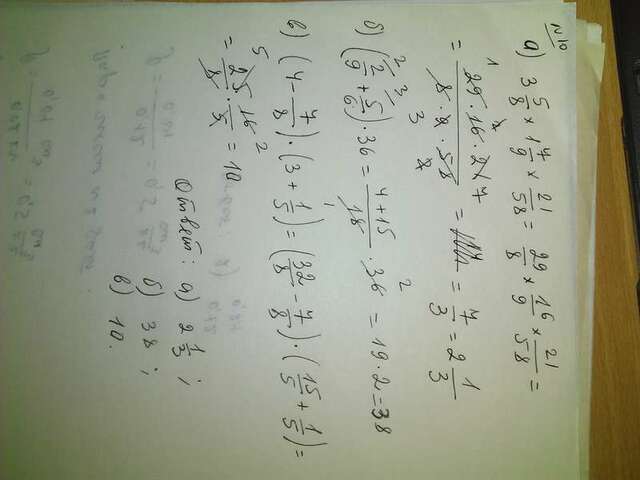 N10
а) 3 5/8 × 1 7/9 × 21/58 = 29/8 × 16/9 × 21/58 =
= 29 · 16 · 21 / 8 · 9 · 58 = 7/3 = 2 1/3
б) (2/9 + 5/6) · 36 = 4 + 15 / 18 · 36 = 19 · 2 = 38
в) (4 - 7/8) · (3 + 1/5) = (32/8 - 7/8) · (15/5 + 1/5) =
= 25/8 · 16/5 = 10
Ответ: а) 2 1/3 ;
б) 38 ;
в) 10.